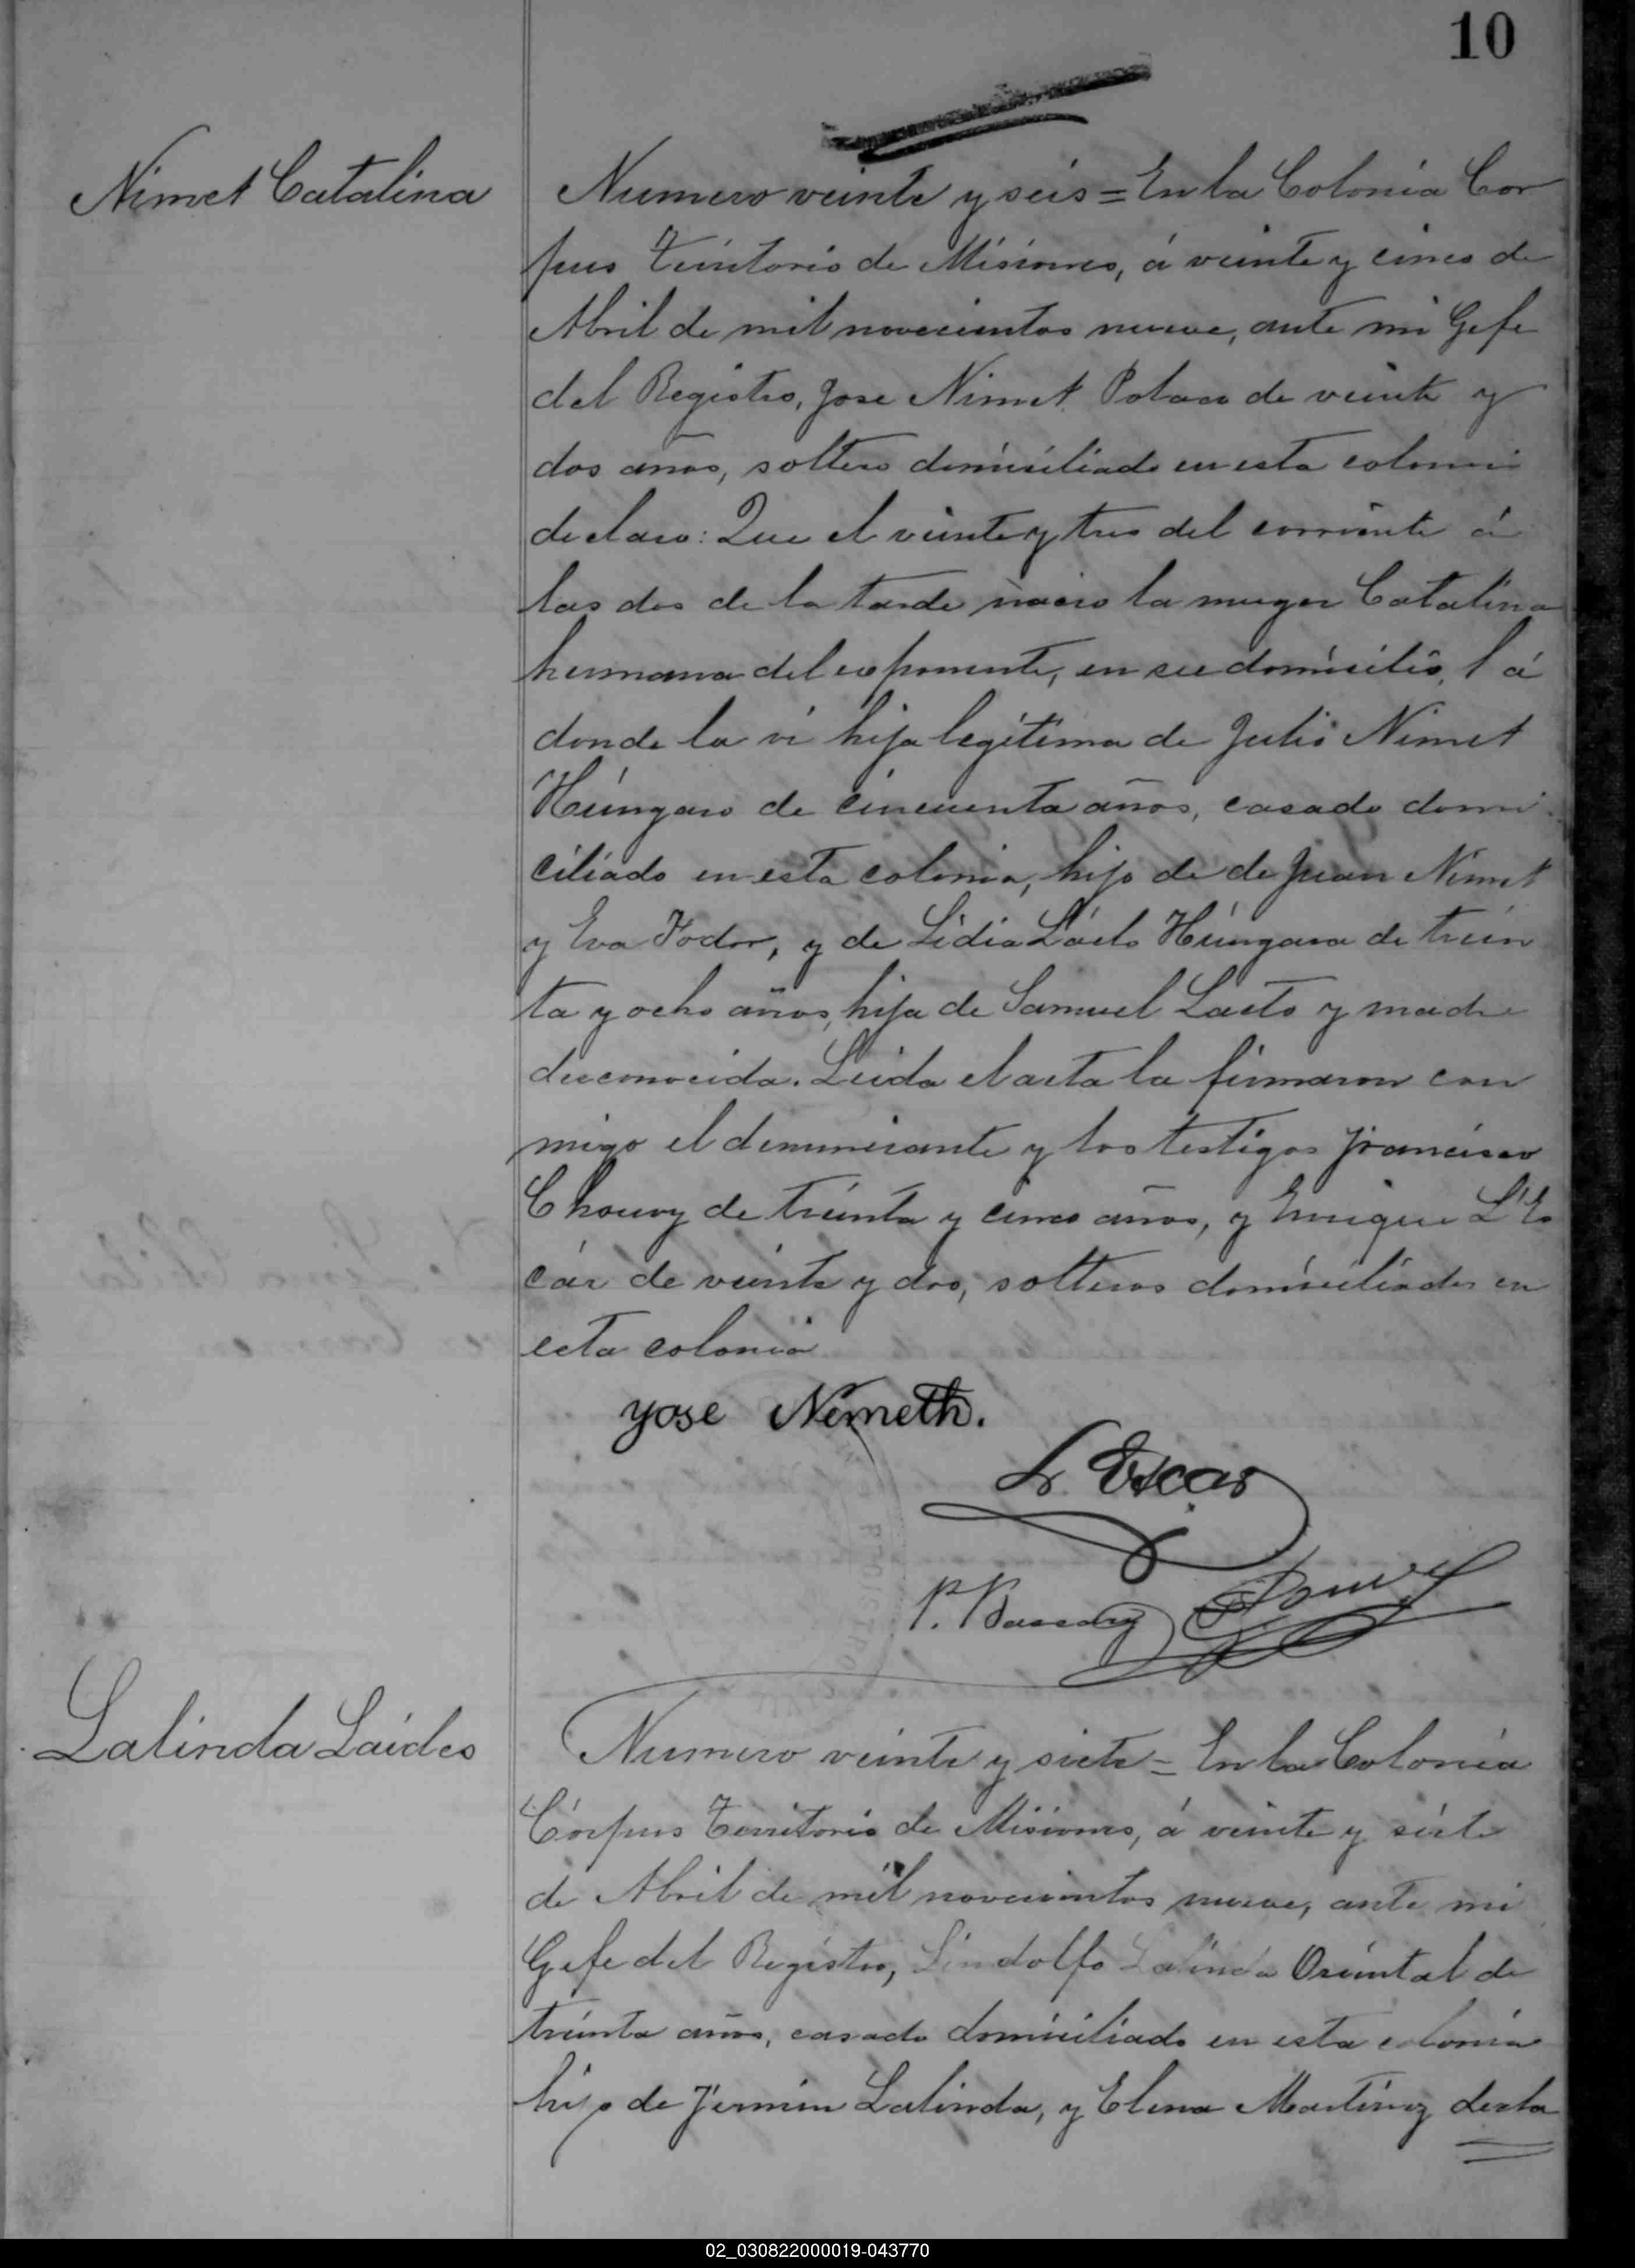 10
Nimet Catalina
Numero veinte y seis = En la Colonia Cor
pus Territorio de Misiones, á veinte y cinco de
Abril de mil novecientos nueve, ante mi Gefe
del Registro, Jose Nimet Polaco de veinte y
dos años, soltero domiciliado en esta colonia
declaro: Que el veinte y tres del corriente á
las dos de la tarde nacio la muger Catalina
hermana del exponente, en su domicilio, á
donde la vi hija legitima de Julio Nimet
Húngaro de cincuenta años, casado domi
ciliado en esta colonia, hijo de de Juan Nimet
y Eva Fodor, y de Lidia Húngara de trein
ta y ocho años, hija de Samuel y madre
desconocida. Leida el acta la firmaron con
migo el denunciante y los testigos Francisco
Chouvy de treinta y cinco años, y Enrique L'Es
cár de veinte y dos, solteros domiciliados en
esta colonia
yose Németh.
L. Escar
Lalinda Laides
Numero veinte y siete = En la Colonia
Córpus Territorio de Misiones, á veinte y siete
de Abril de mil novecientos nueve, ante mi
Gefe del Registro, Lindolfo Lalinda Oriental de
treinta años, casado domiciliado en esta colonia
hijo de Fermin Lalinda, y Elena Martinez decla
02_030822000019-043770